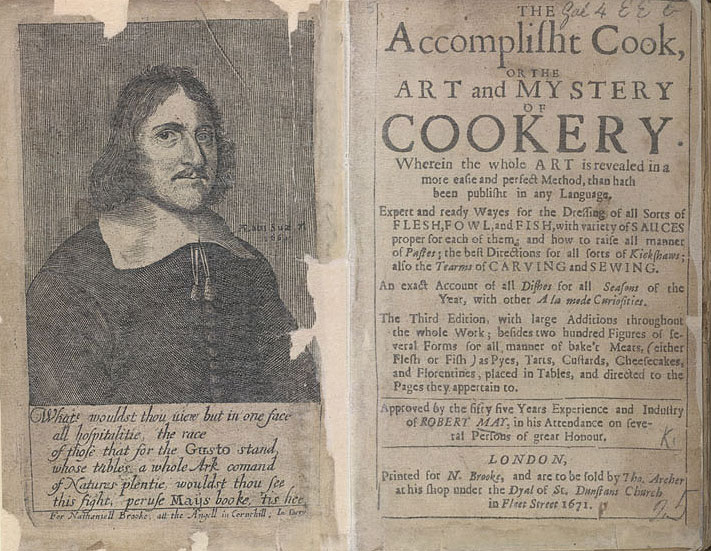 Ætatis Suæ 71
1660
What! wouldst thou view but in one face
all hospitalitie, the race
of those that for the Gusto stand,
whose tables a whole Ark comand
of Natures plentie, wouldst thou see
this sight, peruse Mays booke, 'tis hee
For Nathaniell Brooke, att the Angell in Cornehill,
THE
Accomplisht Cook,
OR THE
ART and MYSTERY
OF
COOKERY.
Wherein the whole ART is revealed in a
more easie and perfect Method, than hath
been publisht in any Language.
Expert and ready Wayes for the Dressing of all Sorts of
FLESH, FOWL, and FISH, with variety of SAUCES
proper for each of them; and how to raise all manner
of Pastes; the best Directions for all sorts of Kickshaws;
also the Tearms of CARVING and SEWING.
An exact Account of all Dishes for all Seasons of the
Year, with other A la mode Curiosities.
The Third Edition, with large Additions throughout
the whole Work; besides two hundred Figures of se-
veral Forms for all manner of bake't Meats, (either
Flesh or Fish) as Pyes, Tarts, Custards, Cheesecakes,
and Florentines, placed in Tables, and directed to the
Pages they appertain to.
Approved by the fifty five Years Experience and Industry
of ROBERT MAY, in his Attendance on seve-
ral Persons of great Honour.
K.
LONDON,
Printed for N. Brooke, and are to be sold by Tho. Archer
at his shop under the Dyal of St. Dunstans Church
in Fleet Street 1671.